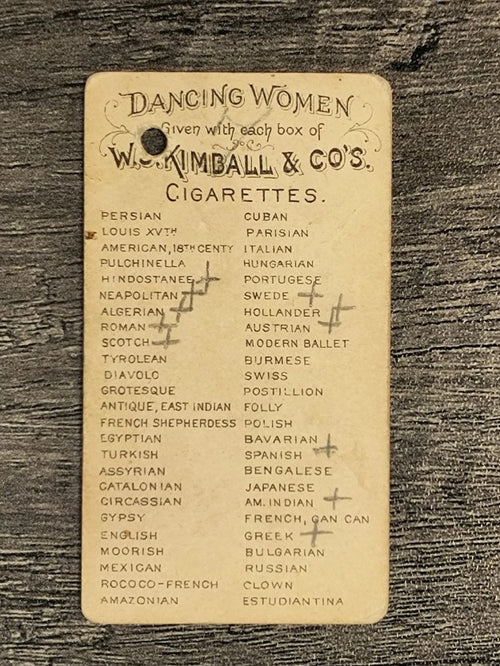 DANCING WOMEN
Given with each box of
W.S. KIMBALL & CO'S.
CIGARETTES.
PERSIAN
LOUIS XVTH
AMERICAN, 18TH CENTY
PULCHINELLA
HINDOSTANEE
NEAPOLITAN
ALGERIAN
ROMAN
SCOTCH
TYROLEAN
DIAVOLO
GROTESQUE
ANTIQUE, EAST INDIAN
FRENCH SHEPHERDESS
EGYPTIAN
TURKISH
ASSYRIAN
CATALONIAN
CIRCASSIAN
GYPSY
ENGLISH
MOORISH
MEXICAN
ROCOCO-FRENCH
AMAZONIAN
CUBAN
PARISIAN
ITALIAN
HUNGARIAN
PORTUGESE
SWEDE
HOLLANDER
AUSTRIAN
MODERN BALLET
BURMESE
SWISS
POSTILLION
FOLLY
POLISH
BAVARIAN
SPANISH
BENGALESE
JAPANESE
AM. INDIAN
FRENCH, CAN CAN
GREEK
BULGARIAN
RUSSIAN
CLOWN
ESTUDIANTINA